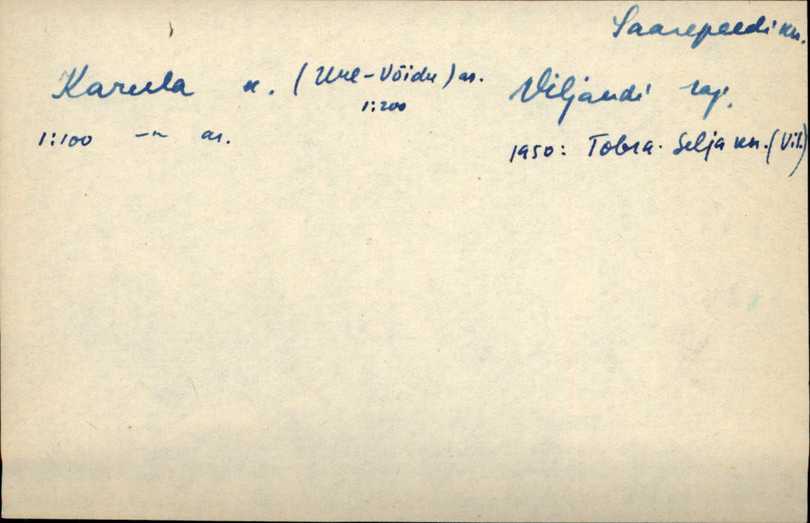 Saarepeedi kn.
Karula k. (Uue-Võidu) as. Viljandi raj.
1:200
1:100 —"— as.
1950: Tobra-Selja kn. (Vil.)